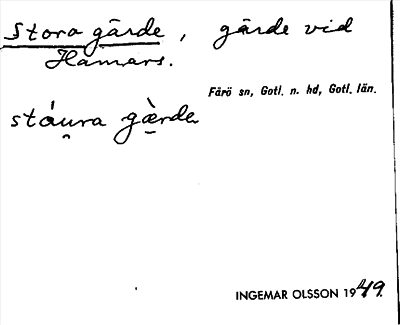 Stora gärde, gärde vid
Hamars.
Fårö sn, Gotl. n. hd, Gotl. län.
stáu̯ra gæ̀rde
INGEMAR OLSSON 1949.